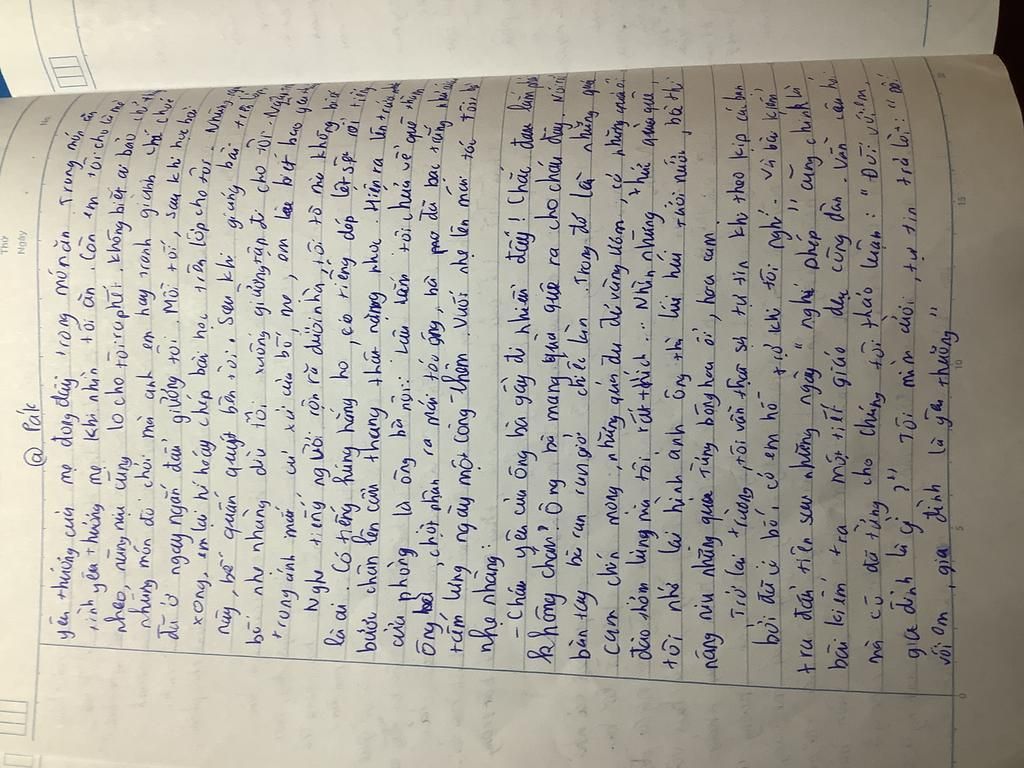 @ Pók
Thứ
Ngày
No
yêu thương của mẹ đong đầy trong món ăn. Trong món ăn
tình yêu thương mẹ khi nhìn tôi ăn. Còn em tôi cho là nhõ
nhẽo, nàng níu cũng lo cho tôi cực phết, không biết ai bảo
những món đồ chơi mà anh em hay tranh giành chí chóe
đã ở ngay ngắn đầu giường tôi. Mỗi tối, sau khi học bài
xong, em lại hí hoáy chép bài học trên lớp cho tôi. Những
này, bố quấn quýt bên tôi. Sau khi giảng bài
bố nhẹ nhàng dìu tôi xuống giường tập đi cho tôi.
trong ánh mắt, cử xử của bố, mẹ, em biết bao yêu
Nghe tiếng người rộn rã dưới nhà, tôi tò mò không biết
là ai. Có tiếng húng hắng ho, có tiếng dép lẹp
bước chân lên cầu thang thật nặng nhọc. Hiện ra lên trước
cửa phòng là ông bà nội. Lâu lắm tôi chưa về quê thăm
ông bà, chợt nhận ra mái tóc ông, bà pha đã bạc trắng
tấm lưng ngày một còng thêm. Vuốt nhẹ lên mái tóc tôi, bà
nhẹ nhàng:
- Cháu yêu của ông bà gầy đi nhiều đấy! Chắc đau lắm phải
không cháu? Ông bà mang quà quê ra cho cháu đây. Nói
bàn tay bà run run giở chiếc làn. Trong đó là những quả
cam chín mọng, những quả đu đủ vàng ươm, có những quả ổi
đào thơm lừng mà tôi rất thích... Nhìn những thứ quà quê
tôi nhớ lại hình ảnh ông thì lúi húi tưới nước, bà thì
nâng niu những quả từng bông hoa ổi, hoa cam.
Trở lại trường, tôi vẫn thật sự tự tin khi theo kịp các bạn
bởi đã có bố, có em hỗ trợ khi tôi nghỉ. Và bài kiểm
tra đầu tiên sau những ngày "nghỉ phép" cũng chính là
bài kiểm tra một tiết giáo dục công dân. Vẫn câu hỏi
mà cô đã từng cho chúng tôi thảo luận: "Đối với em
gia đình là gì?" Tôi mỉm cười, tự tin trả lời: "Đối
với em, gia đình là yêu thương"
0
5
10
15